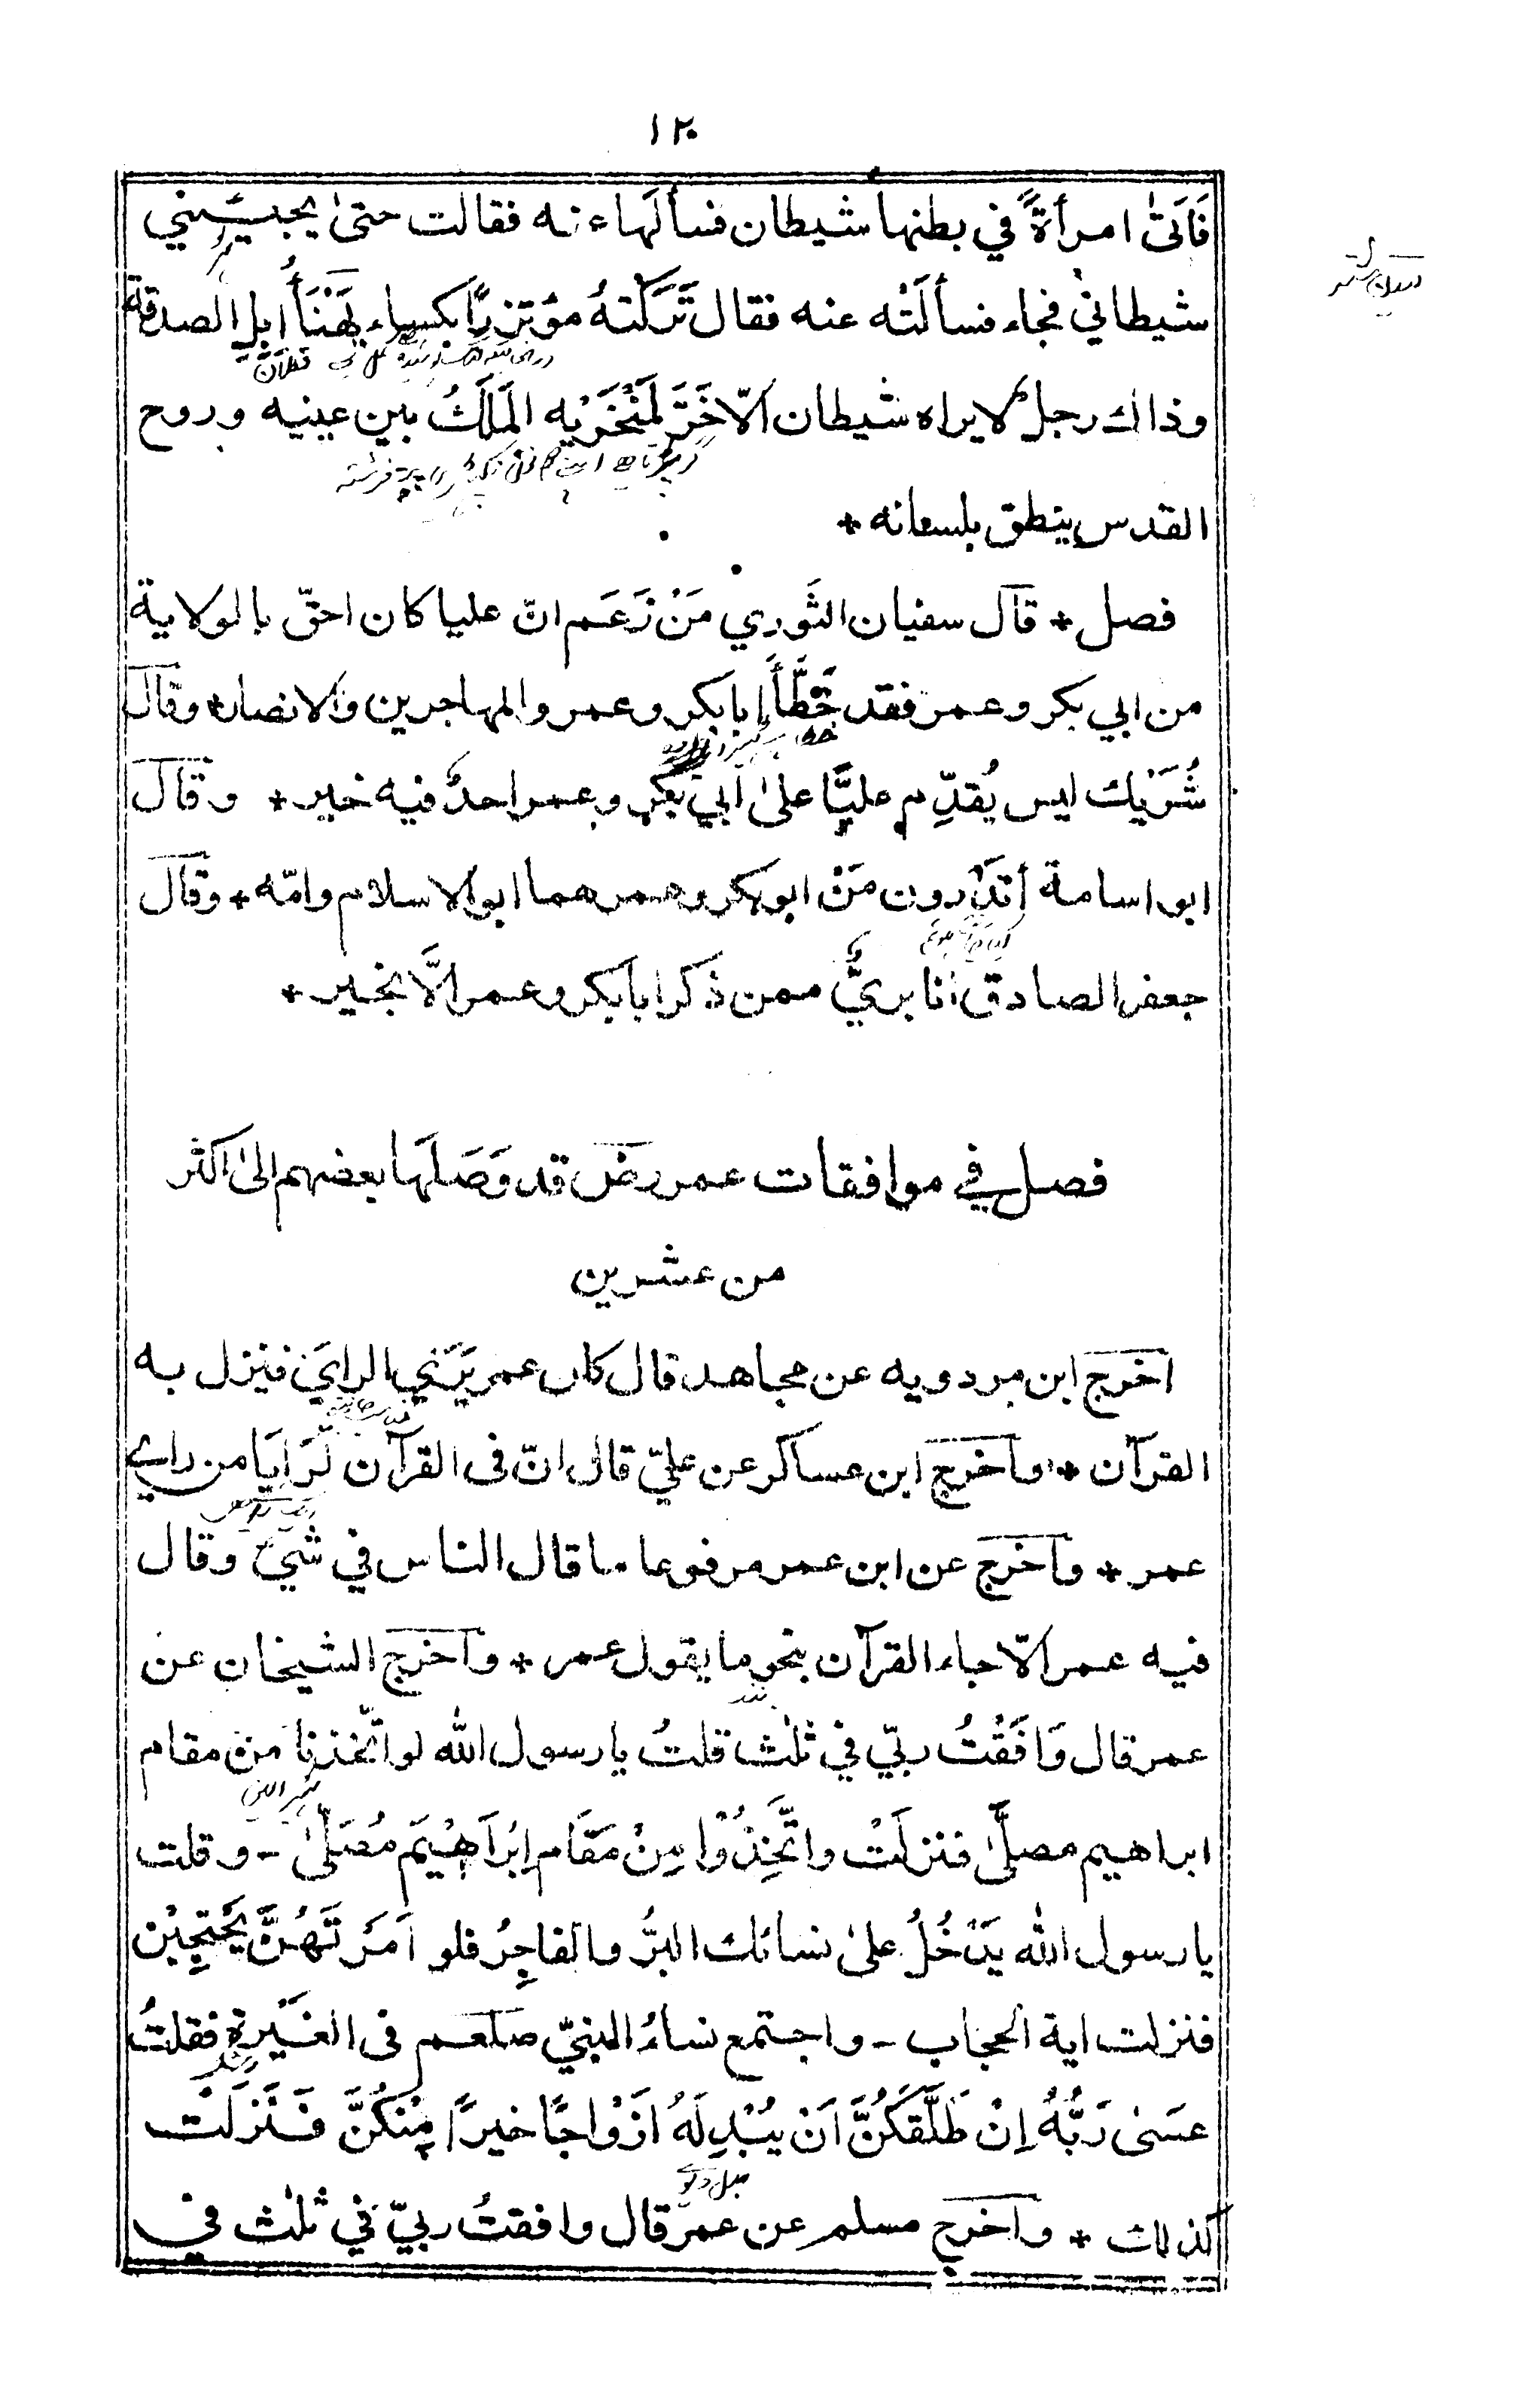 ١٢٠
فَاَتىٰ امرأةً في بطنها شيطان فسألَها عنه فقالت حتىٰ يجيئني
شيطاني فجاء فسألَتْه عنه فقال تَرَكْتهُ مؤتزرًا بكساء يَهْنَأُ اِبِلِ الصدقة
وذاك رجلٌ لا يراه شيطان الّا خَرَّ لمَنْخَرَيْه المَلَكُ بين عينيه و روح
القدس ينطق بلسانه *
فصل * قال سفيان الثَوري مَنْ زَعَم انّ عليا كان احقّ بالولاية
من ابي بكر وعمر فقد خَطَّأَ ابابكر وعمر والمهاجرين والانصار * وقال
شُرَيْك ليس يُقدِّم عليًّا علىٰ ابي بكر وعمر احدٌ فيه خير * وقال
ابو اسامة أتَدْرون مَنْ ابوبكر وعمر هما ابو الاسلام وامّه * وقال
جعفر الصادق انا بريٌّ ممن ذكر ابابكر وعمر الَّا بخير *
فصل في موافقات عمر رض قد وَصَلَها بعضهم الىٰ اكثر
من عشرين
اخرج ابن مردويه عن مجاهد قال كان عمر يَرَى الرايَ فينزل به
القرآن * واخرج ابن عساكر عن عليّ قال انّ فى القرآن لَرَايَا من راي
عمر * واخرج عن ابن عمر مرفوعا ما قال الناس في شيئ وقال
فيه عمر الّا جاء القرآن بنحو ما يقول عمر * واخرج الشيخان عن
عمر قال وَافَقْتُ ربّي في ثلٰث قلتُ يا رسول الله لو اتّخذنا من مقام
ابراهيم مصلًّىٰ فنزلَتْ واتَّخِذُوْا مِنْ مَقَامِ اِبْرَاهِيْمَ مُصَلًّىٰ - و قلت
يا رسول الله يَدْخُلُ علىٰ نسائك البرُّ والفاجِرُ فلو اَمَرْتَهُنَّ يَحْتَجِبْن
فنزلت اية الحجاب - و اجتمع نساءُ النبيّ صلعم فى الغَيْرة فقلتُ
عسَىٰ رَبُّهُ اِنْ طَلَّقَكُنَّ اَنْ يُبْدِلَهُ اَزْوَاجًا خيرًا مِنْكُنَّ فَنَزلَتْ
كذلك * واخرج مسلم عن عمر قال وافقتُ ربيّ في ثلٰث في